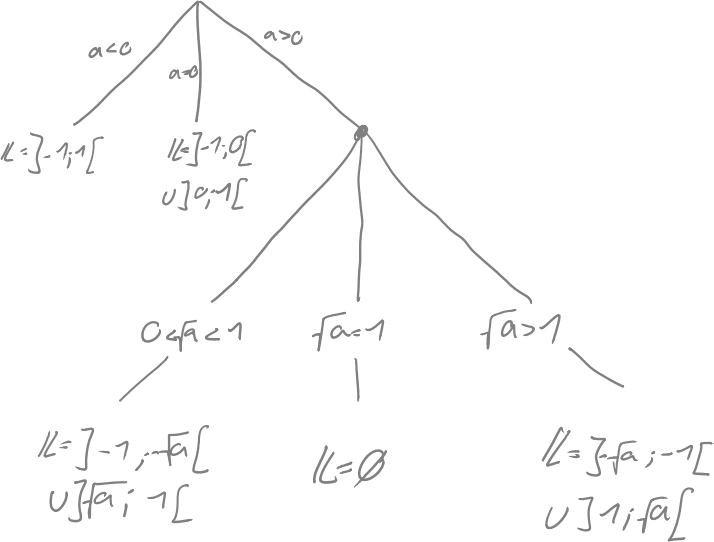 a<0
a=0
a>0
𝕃=]-1;1[
𝕃=]-1;0[
∪]0;1[
0<√a<1
√a=1
√a>1
𝕃=]-1;-√a[
∪]√a;1[
𝕃=∅
𝕃=]-√a;-1[
∪]1;√a[